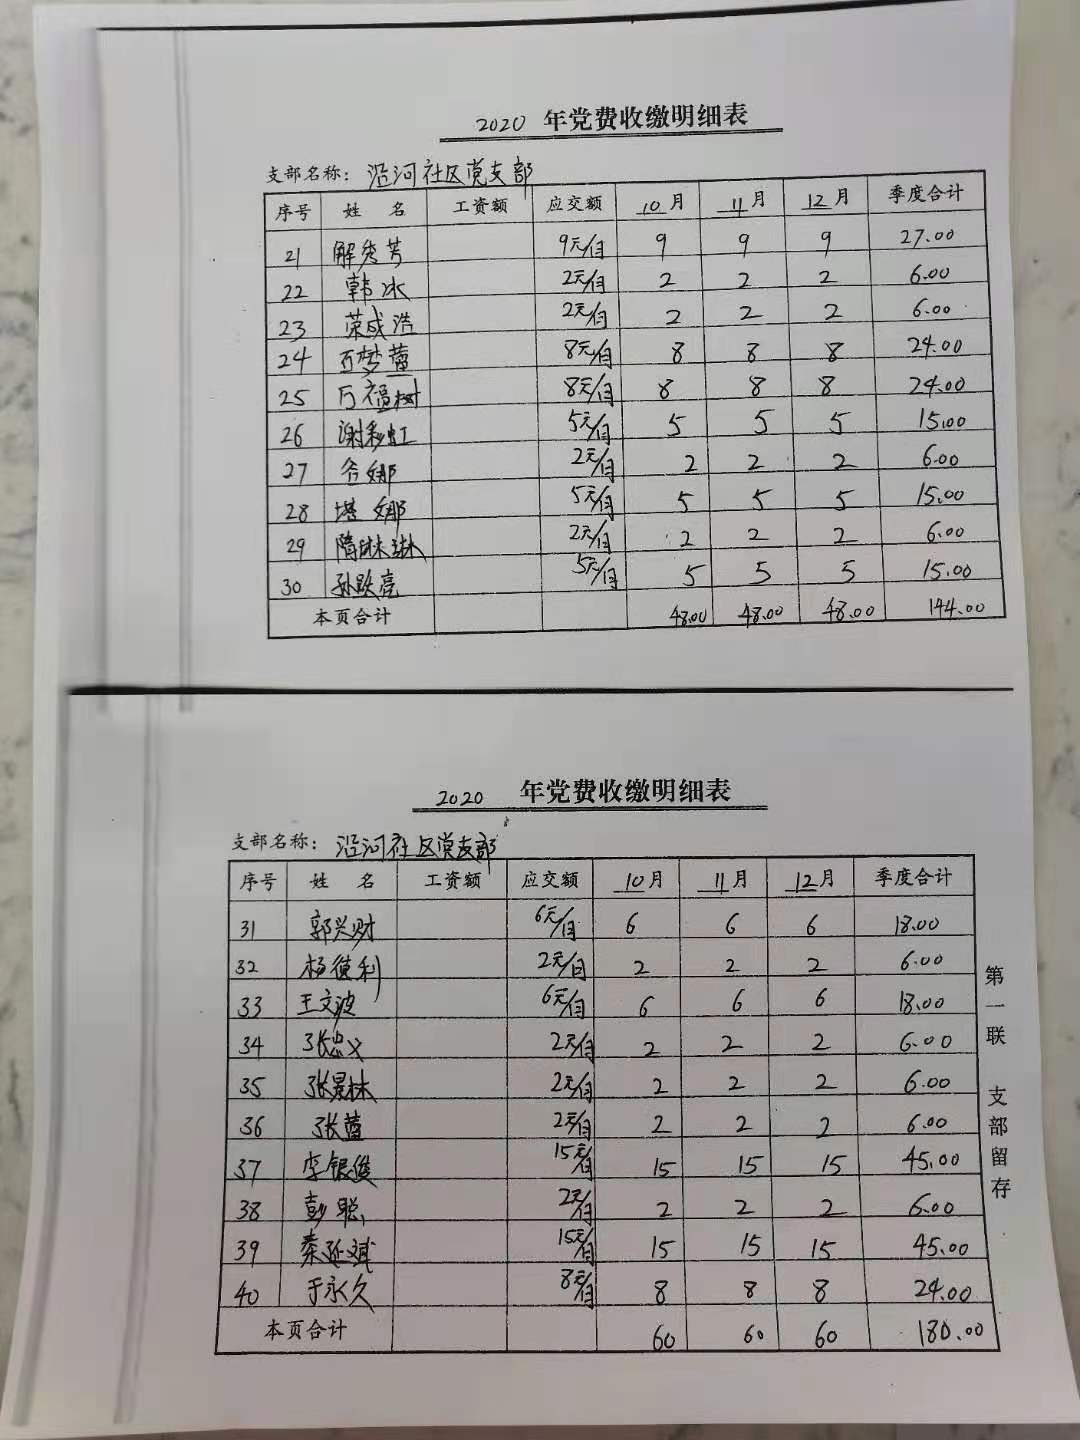 2020 年党费收缴明细表
支部名称：沿河社区党支部
序号 姓 名 工资额 应交额 10月 11月 12月 季度合计
21 解秀芳 9元/月 9 9 9 27.00
22 韩冰 2元/月 2 2 2 6.00
23 荣成浩 2元/月 2 2 2 6.00
24 梦蕾 8元/月 8 8 8 24.00
25 万福树 8元/月 8 8 8 24.00
26 谢彩虹 5元/月 5 5 5 15.00
27 娜 2元/月 2 2 2 6.00
28 塔娜 5元/月 5 5 5 15.00
29 隋琳琳 2元/月 2 2 2 6.00
30 孙跃亮 5元/月 5 5 5 15.00
本页合计 48.00 48.00 48.00 144.00
2020 年党费收缴明细表
支部名称：沿河社区党支部
序号 姓 名 工资额 应交额 10月 11月 12月 季度合计
31 郭兴财 6元/月 6 6 6 18.00
32 杨德利 2元/月 2 2 2 6.00
33 王文波 6元/月 6 6 6 18.00
34 张忠义 2元/月 2 2 2 6.00
35 张景林 2元/月 2 2 2 6.00
36 张蕾 2元/月 2 2 2 6.00
37 李银俊 15元/月 15 15 15 45.00
38 彭聪 2元/月 2 2 2 6.00
39 秦延斌 15元/月 15 15 15 45.00
40 于永久 8元/月 8 8 8 24.00
本页合计 60 60 60 180.00
第一联 支部留存